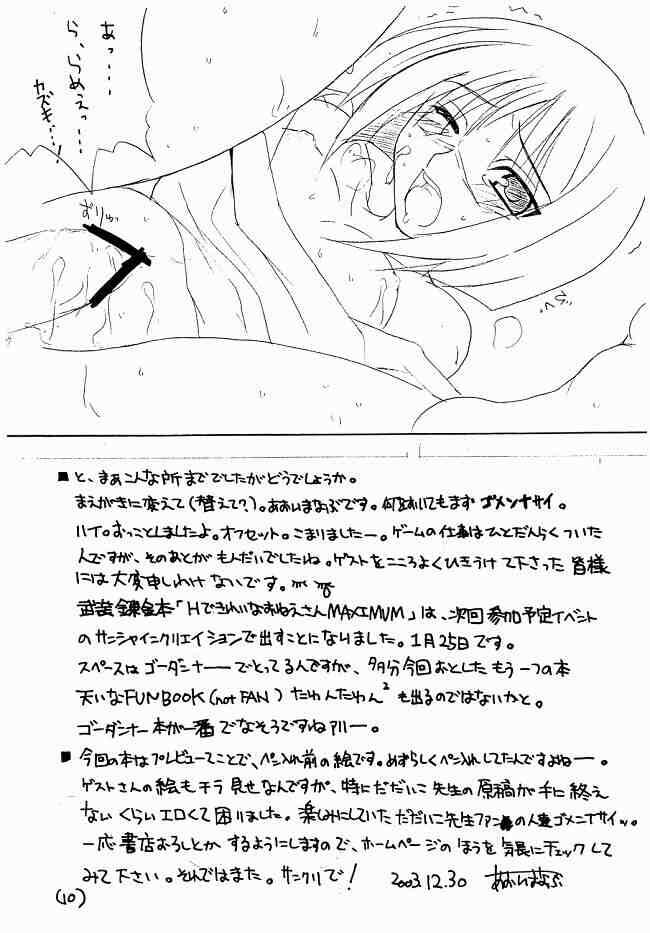 あっ……
ら、らめぇっ…
カズキ…!
■と、まぁこんな所まででしたがどうでしょうか。
まえがきに変えて(替えて?)。あおいまなぶです。何はおいてもまずゴメンナサイ。
ハイ。おっことしましたよ。オフセット。こまりましたー。ゲームの仕事はひとだんらくついた
んですが、そのあとがもんだいでしたね。ゲストをこころよくひきうけて下さった皆様
には大変申しわけないです。
武装錬金本「HできれいなおねえさんMAXIMUM」は、次回参加予定イベント
のサンシャインクリエイションで出すことになりました。1月25日です。
スペースはゴーダンナーーでとってるんですが、多分今回おとしたもう一つの本
天いなFUNBOOK(not FAN)たわんたわん²も出るのではないかと。
ゴーダンナー本が一番でなそうですねアリー。
■今回の本はプレビューてことで、ペン入れ前の絵です。めずらしくペン入れしてたんですよねー。
ゲストさんの絵もチラ見せなんですが、特にだだいこ先生の原稿が手に終え
ないくらいエロくて困りました。楽しみにしていただだいこ先生ファンの人達ゴメンナサイッ。
一応書店おろしとかするようにしますので、ホームページのほうを気長にチェックして
みて下さい。それではまた。サンクリで!
2003.12.30 あおいまなぶ
(10)